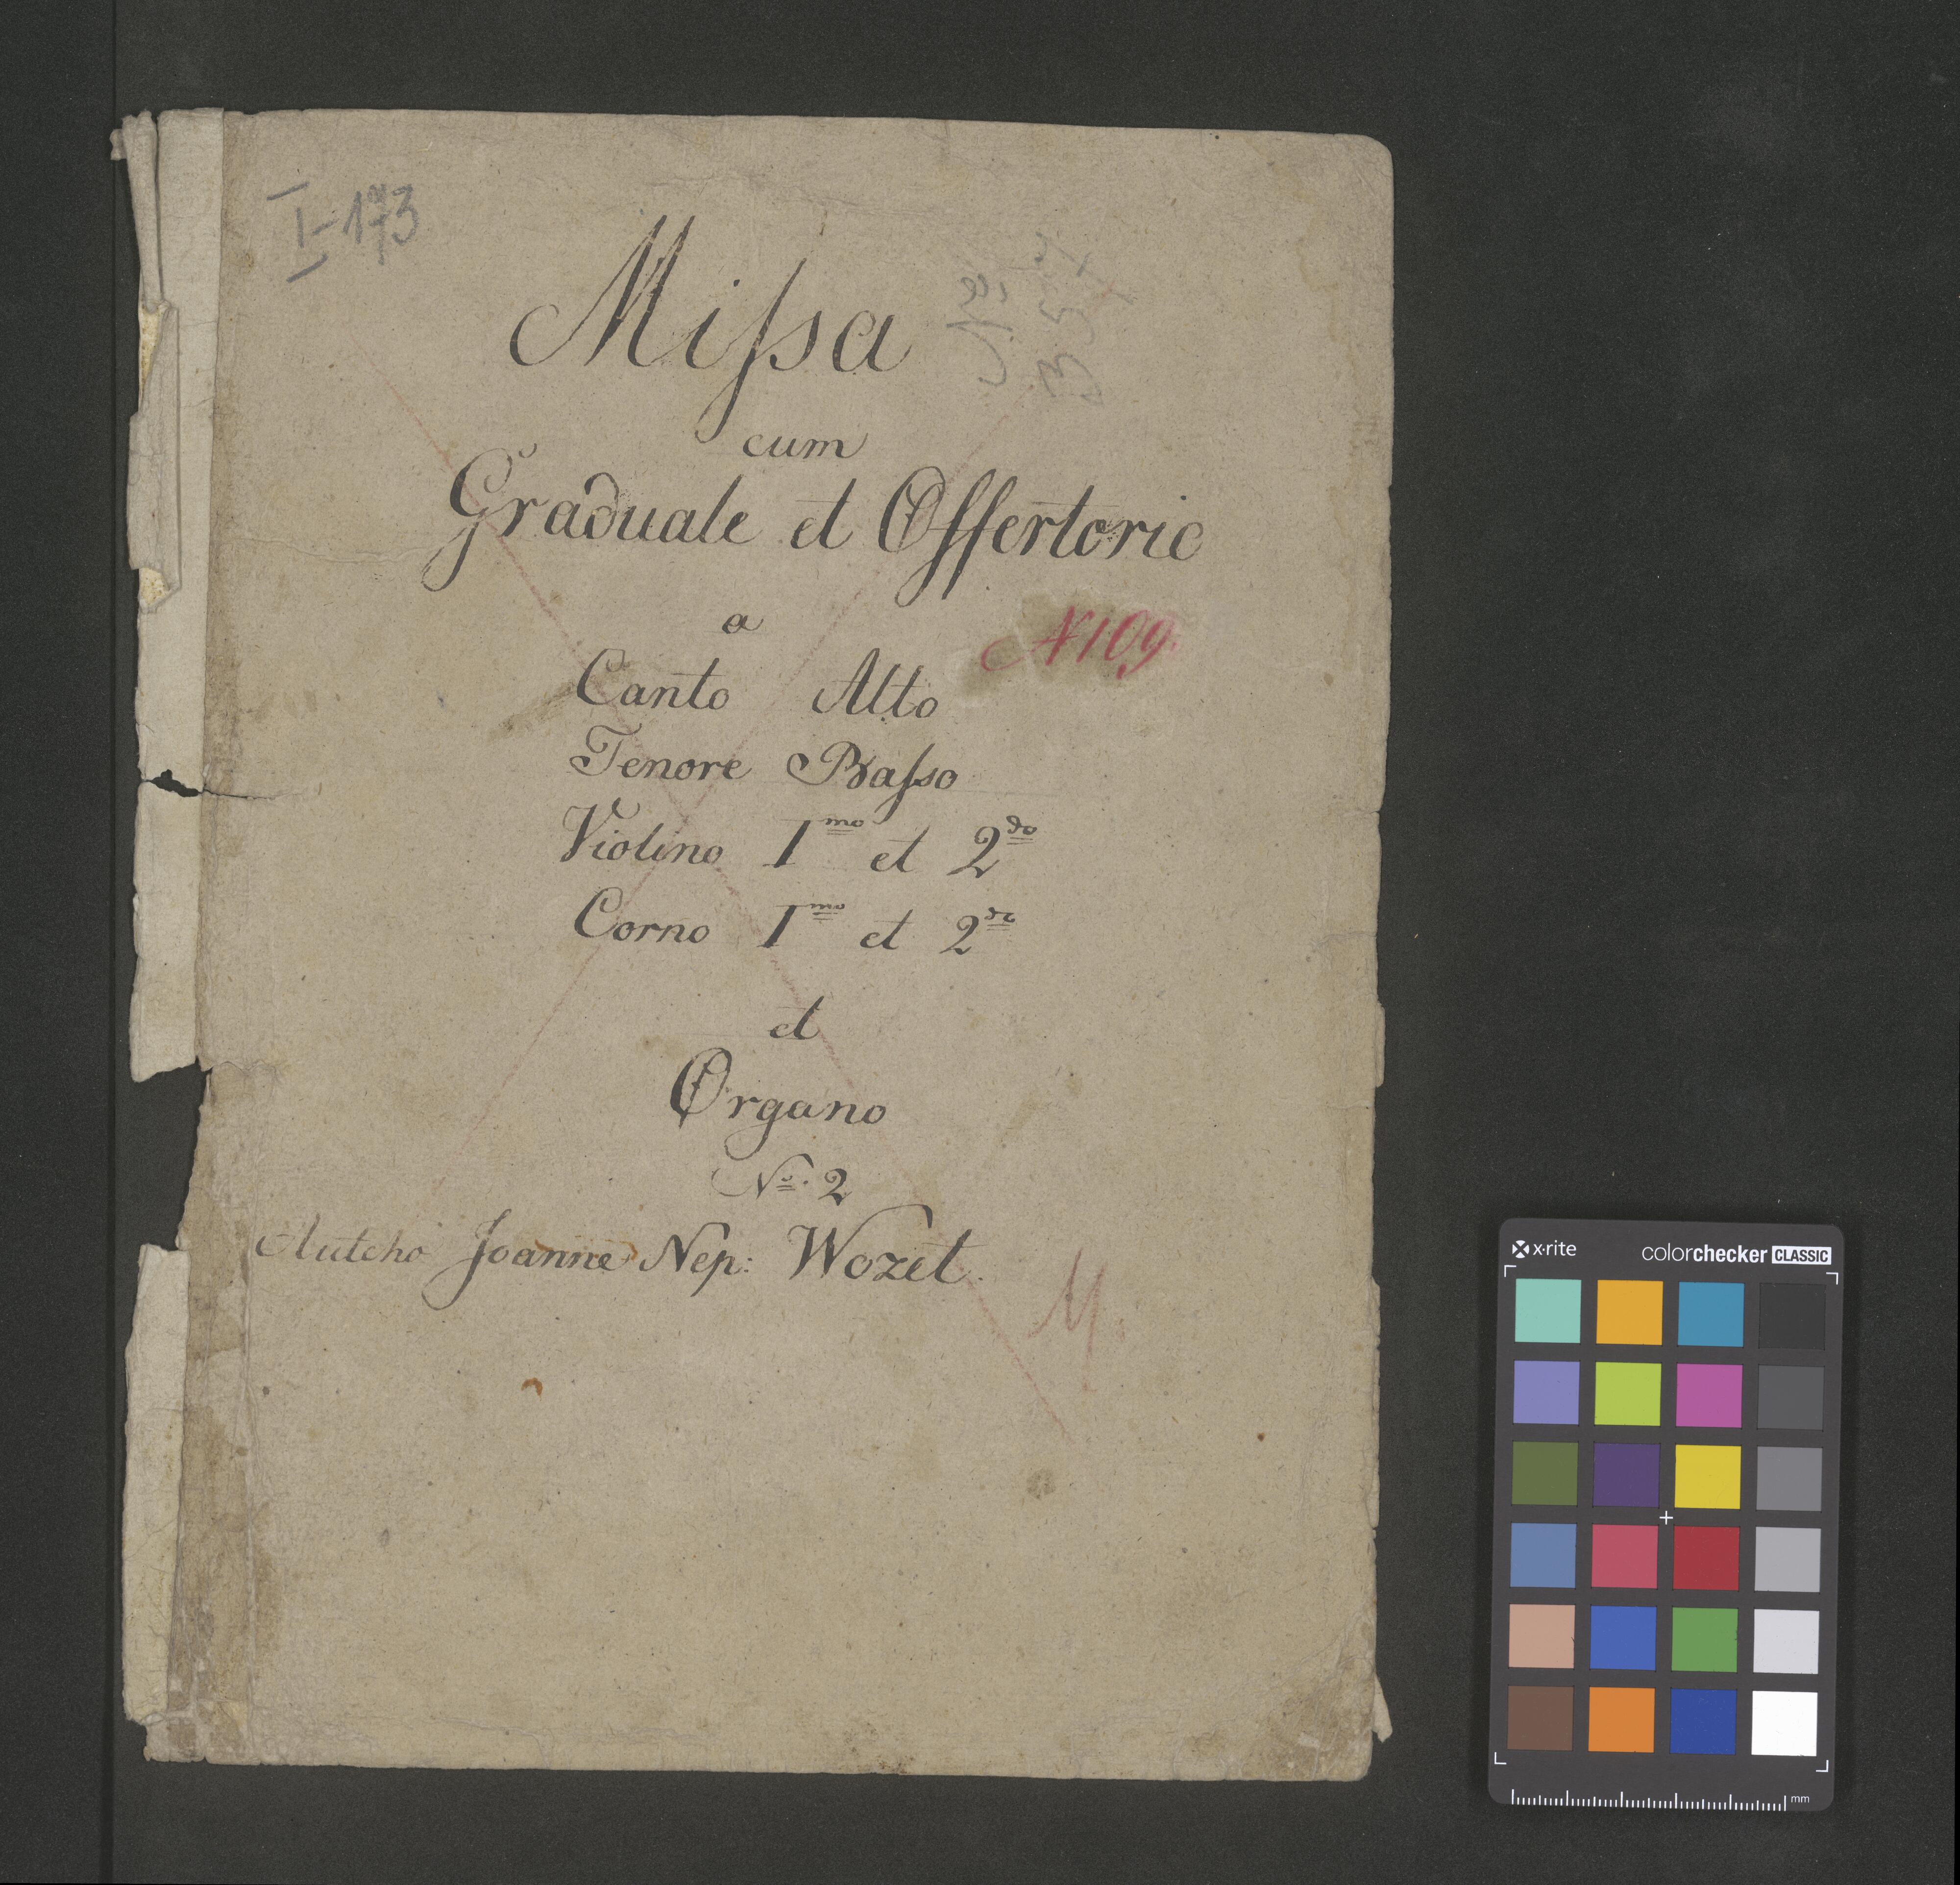 I-173
Miſsa
cum
Graduale et Offertorio
a
N 109.
Canto Alto
Tenore Baſso
Violino 1mo et 2do
Corno 1mo et 2do
et
Organo
No. 2
Joanne Nep: Wozet.
M.
x·rite colorchecker CLASSIC
mm